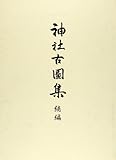 神社古圖集
續編